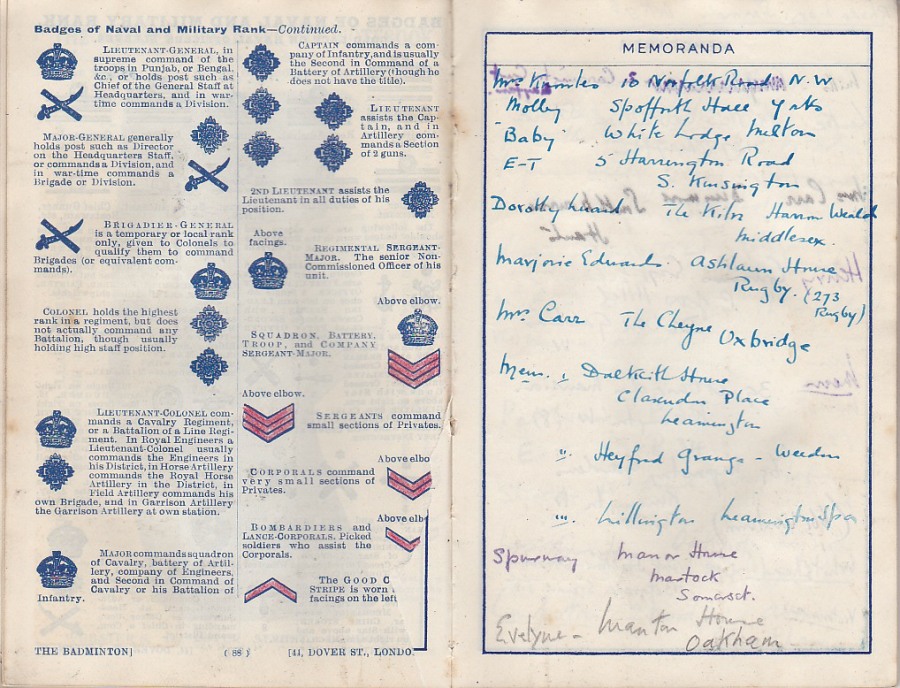 Badges of Naval and Military Rank—Continued.
LIEUTENANT-GENERAL, in
supreme command of the
troops in Punjab, or Bengal,
&c., or holds post such as
Chief of the General Staff at
Headquarters, and in war-
time commands a Division.
MAJOR-GENERAL generally
holds post such as Director
on the Headquarters Staff,
or commands a Division, and
in war-time commands a
Brigade or Division.
BRIGADIER-GENERAL
is a temporary or local rank
only, given to Colonels to
qualify them to command
Brigades (or equivalent com-
mands).
COLONEL holds the highest
rank in a regiment, but does
not actually command any
Battalion, though usually
holding high staff position.
LIEUTENANT-COLONEL com-
mands a Cavalry Regiment,
or a Battalion of a Line Regi-
ment. In Royal Engineers a
Lieutenant-Colonel usually
commands the Engineers in
his District, in Horse Artillery
commands the Royal Horse
Artillery in the District, in
Field Artillery commands his
own Brigade, and in Garrison Artillery
the Garrison Artillery at own station.
MAJOR commands squadron
of Cavalry, battery of Artil-
lery, company of Engineers,
and Second in Command of
Cavalry or his Battalion of
Infantry.
CAPTAIN commands a com-
pany of Infantry, and is usually
the Second in Command of a
Battery of Artillery (though he
does not have the title).
LIEUTENANT
assists the Cap-
tain, and in
Artillery com-
mands a Section
of 2 guns.
2ND LIEUTENANT assists the
Lieutenant in all duties of his
position.
Above
facings.
REGIMENTAL SERGEANT-
MAJOR. The senior Non-
Commissioned Officer of his
unit.
Above elbow.
SQUADRON, BATTERY,
TROOP, and COMPANY
SERGEANT-MAJOR.
Above elbow.
SERGEANTS command
small sections of Privates.
Above elbo
CORPORALS command
very small sections of
Privates.
Above elb
BOMBARDIERS and
LANCE-CORPORALS. Picked
soldiers who assist the
Corporals.
The GOOD C
STRIPE is worn
facings on the left
THE BADMINTON]
( 88 )
[44, DOVER ST., LONDO
MEMORANDA
Mrs 18 Norfolk Road N.W
"Molly" Spofforth Hall Yorks
"Baby" White Lodge Melton
E-T 5 Harrington Road
S. Kensington
Dorothy The Kiln Harrow Weald
Middlesex.
Marjorie Edwards. Ashlawn House
Rugby. (273
Rugby)
Mrs Carr The Cheyne Uxbridge
Mem. Dalkeith House
Clarendon Place
Leamington
" Heyford Grange - Weedon
" Lillington Leamington Spa
Spurway Manor House
Martock
Somerset.
Evelyne - Manton House
Oakham